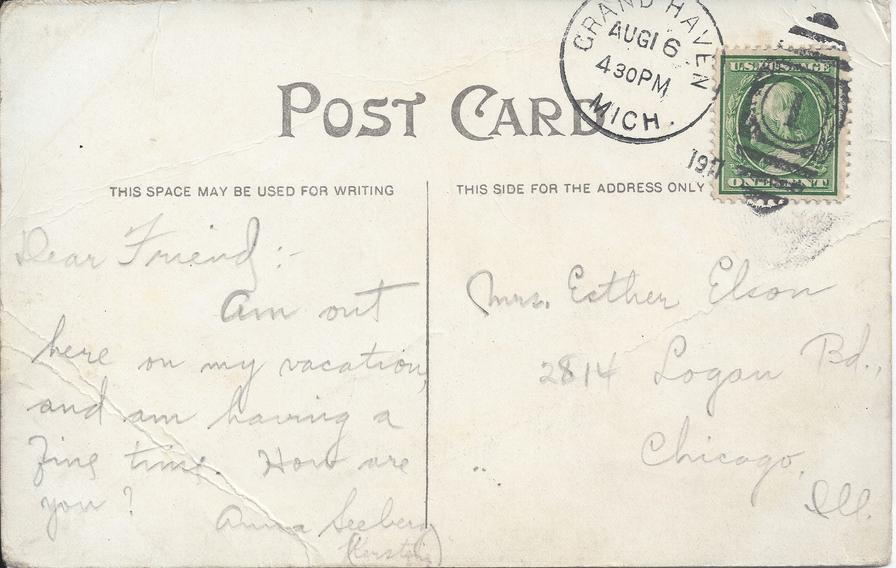 GRAND HAVEN
AUG 16
430PM
MICH.
191
U.S. POSTAGE
1
ONE CENT
POST CARD
THIS SPACE MAY BE USED FOR WRITING
THIS SIDE FOR THE ADDRESS ONLY
Dear Friend:-
Am out
here on my vacation,
and am having a
fine time. How are
you?
Anna Seeberg
Mrs. Esther Elson
2814 Logan Bd.,
Chicago,
Ill.